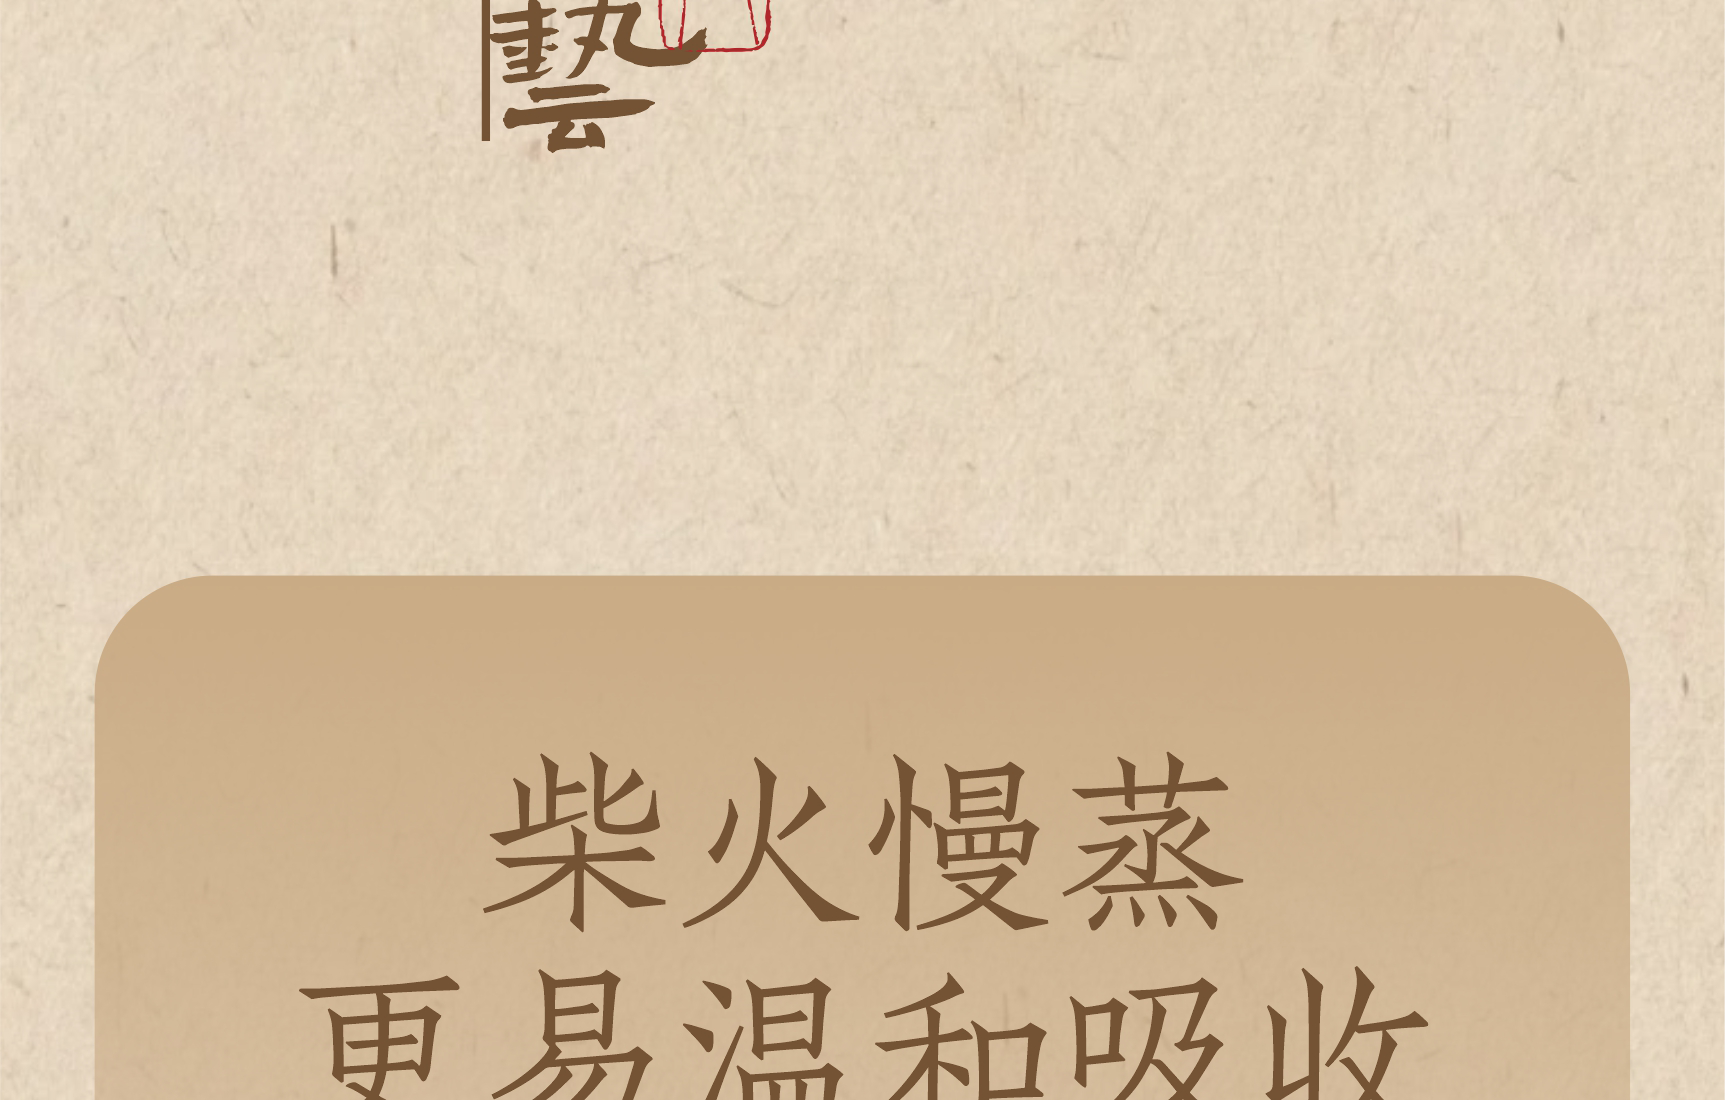 藝
柴火慢蒸
更易温和吸收